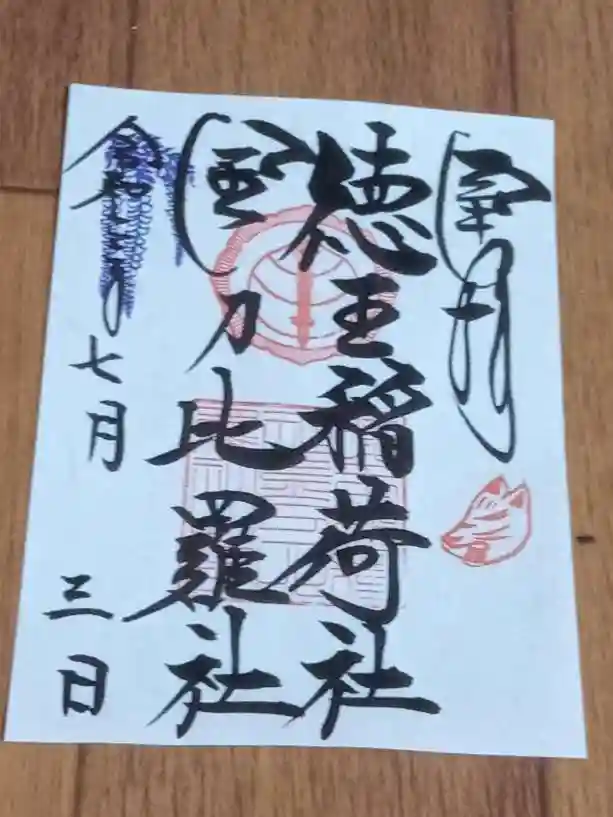 奉拝
徳王稲荷社
金刀比羅社
令和 七月三日